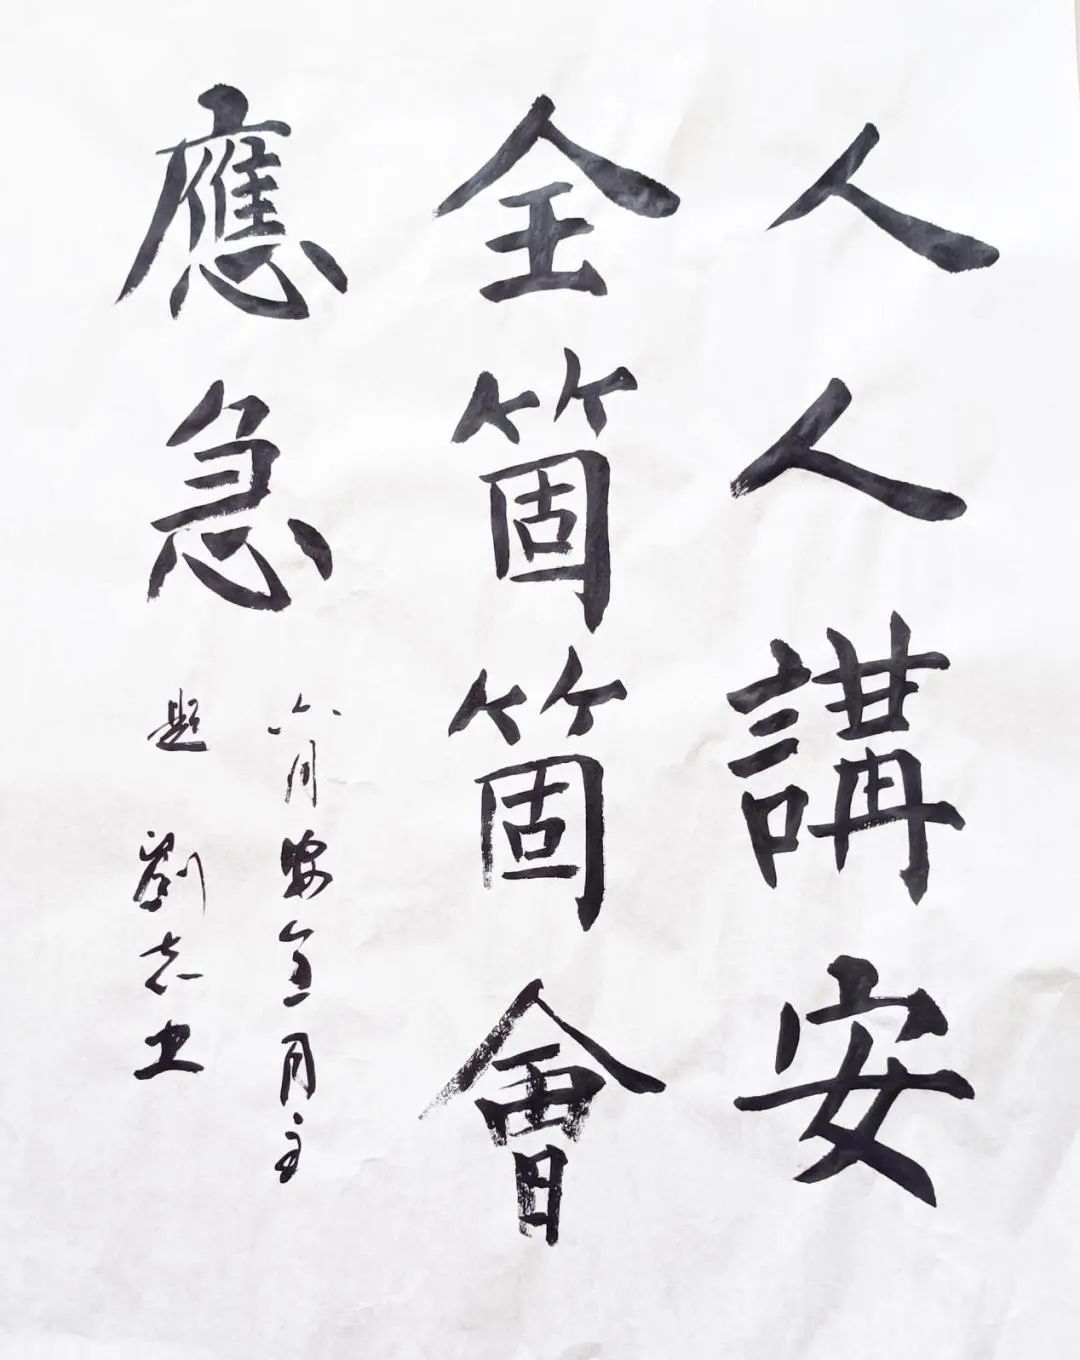 人人講安
全箇箇會
應急
六月安全月主
題 劉志卫